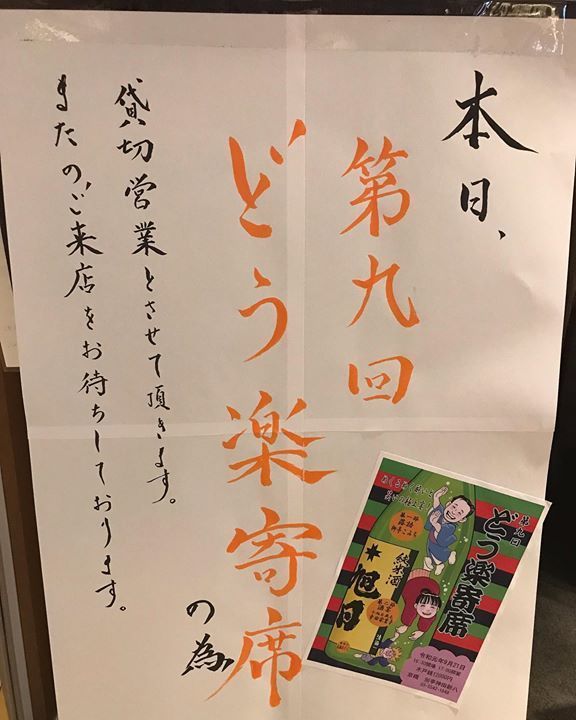 本日、
第九回
どう楽寄席
の為
貸切営業とさせて頂きます。
またのご来店をお待ちしております。
第九回
どう楽寄席
第一部
落語
純米酒
旭日
令和元年9月21日
木戸銭12000円